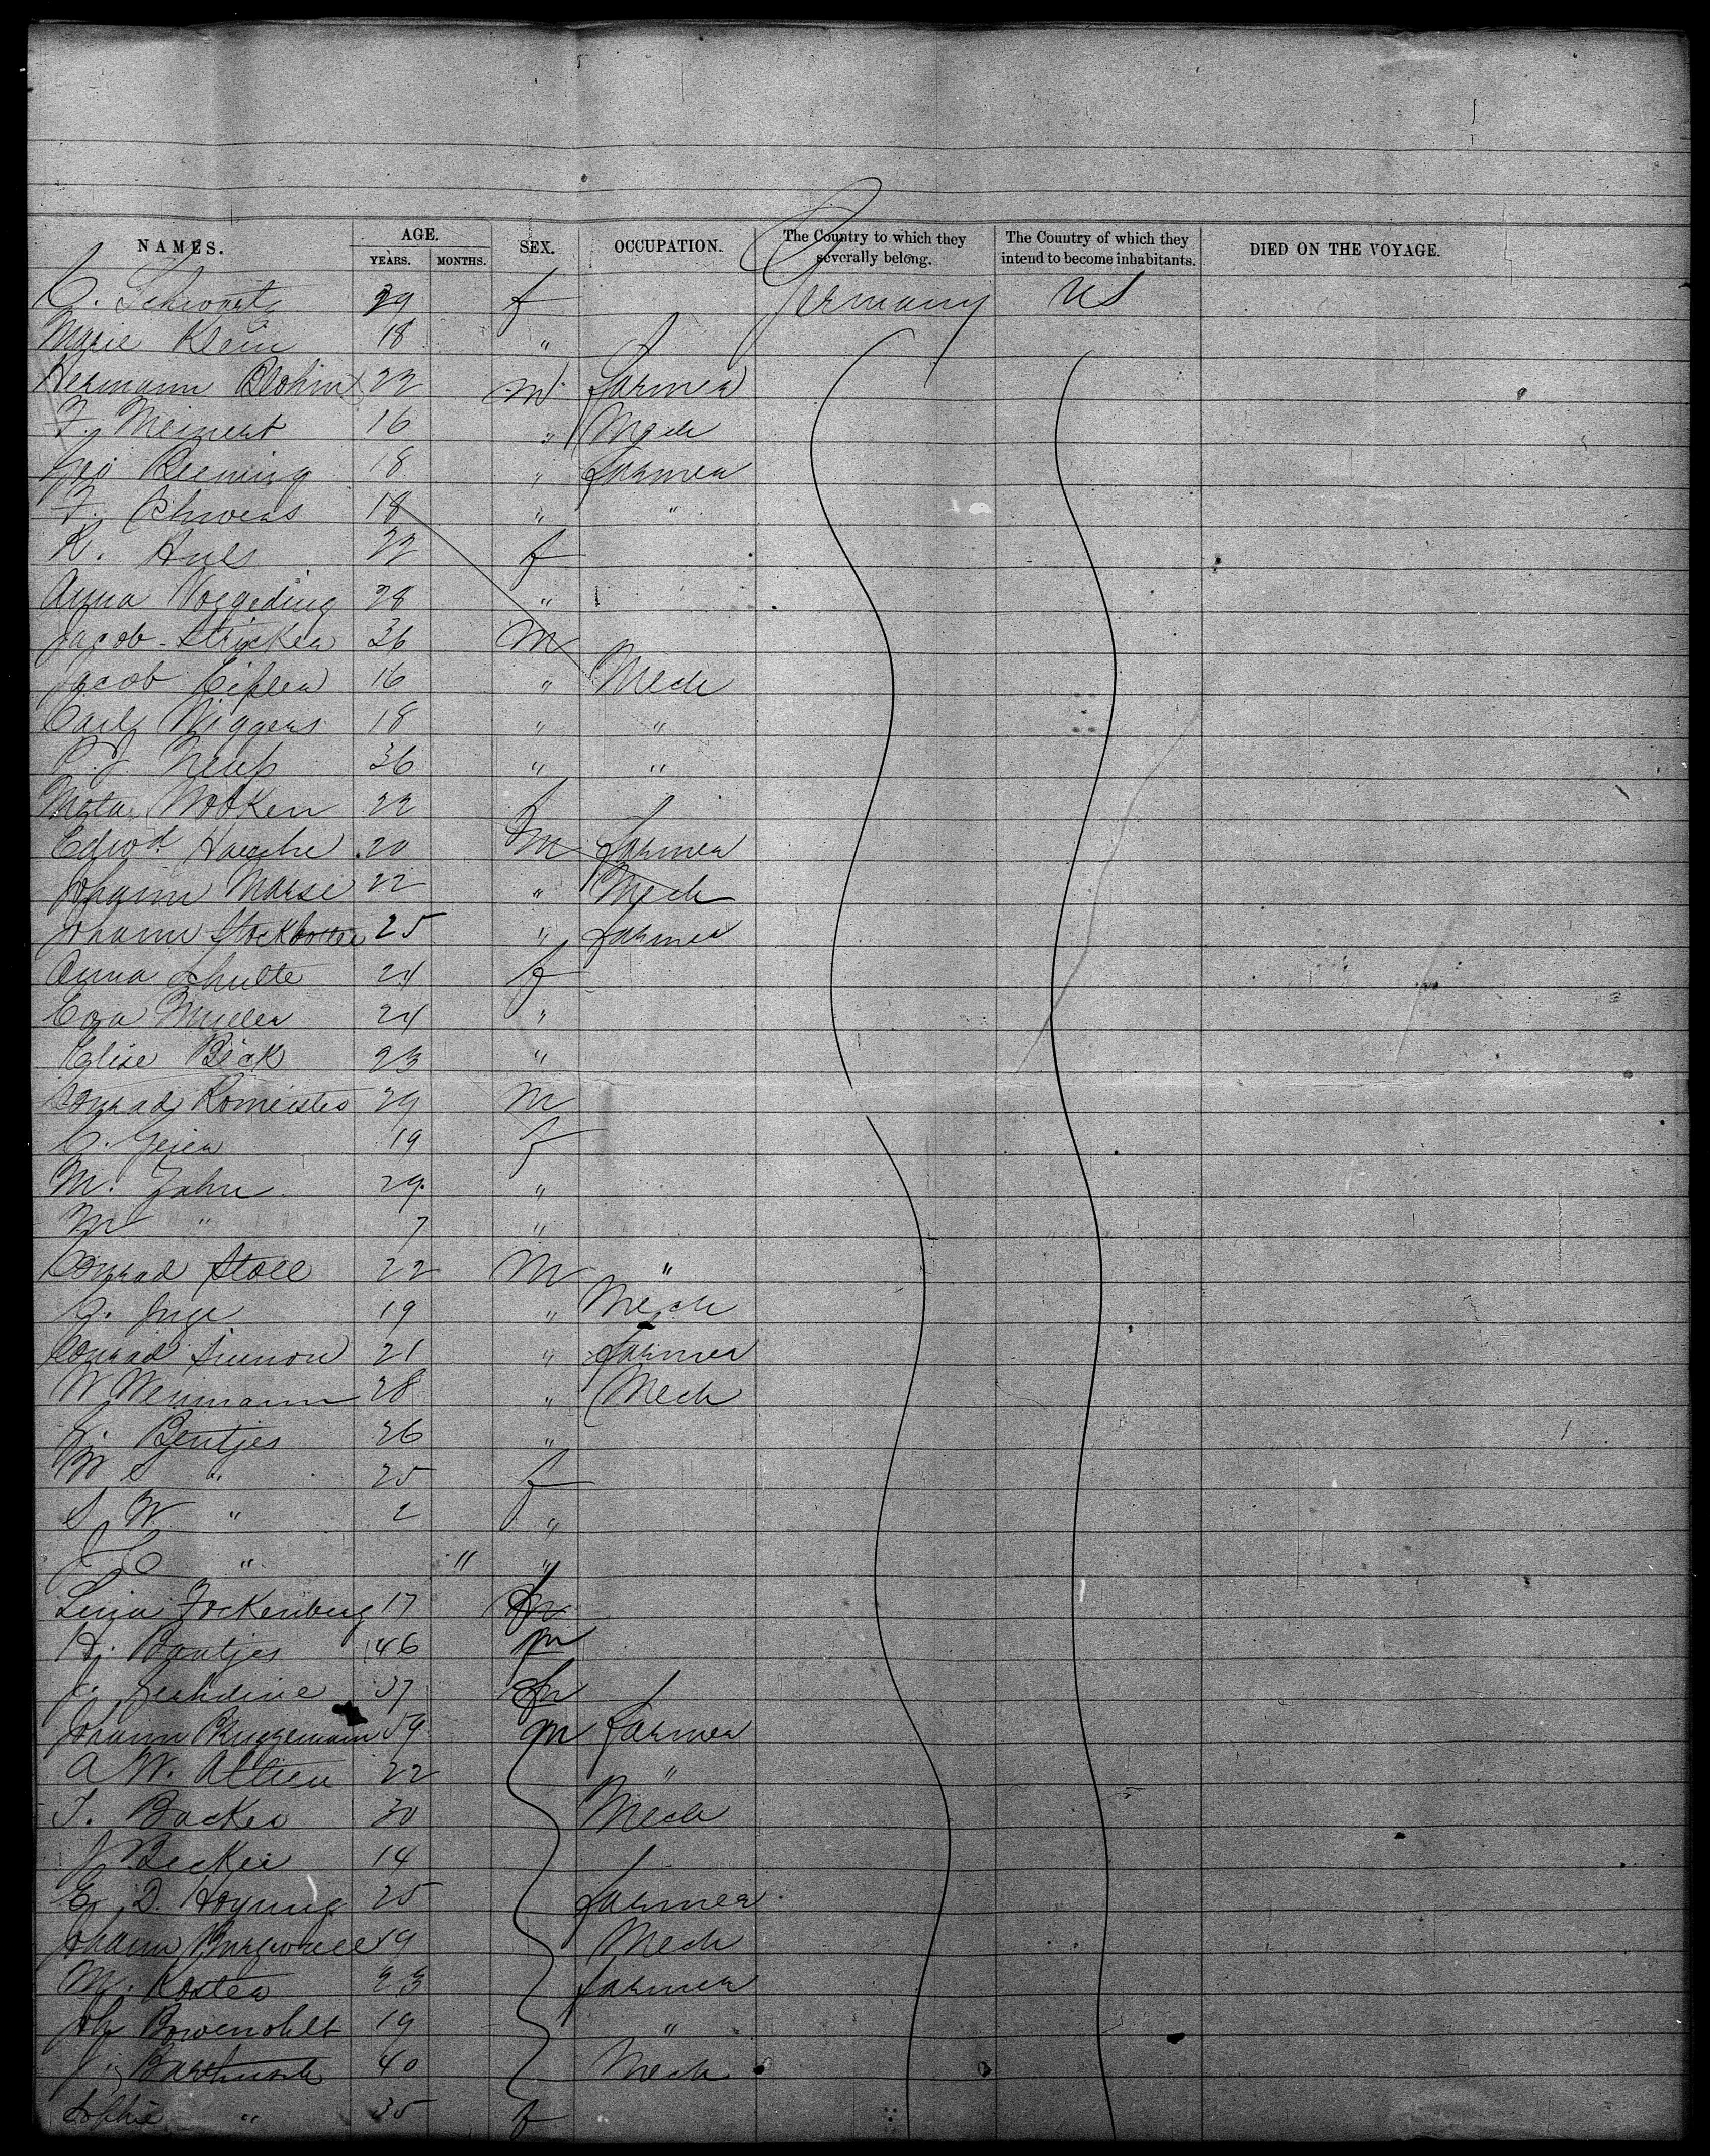 NAMES. AGE. SEX. OCCUPATION. The Country to which they severally belong. The Country of which they intend to become inhabitants. DIED ON THE VOYAGE.
YEARS. MONTHS.
C. 29 f Germany US
Marie Klein 18 "
Hermann Blohm 22 m Farmer
F. Meinert 16 " Mech
Geo Reening 18 " Farmer
F. 18 " "
K. Huls 22 f
Anna Voggeding 28 "
Jacob Stricker 36 M
Jacob Eifler 16 " Mech
Carl Wiggers 18 " "
36 " "
Meta Wobken 22 f
Edwd. 20 M Farmer
Johann Marse 22 " Mech
Johann 25 " Farmer
Anna Schulte 24 f
Eva Muller 24 "
Elise Beck 23 "
Conrad Romeister 29 M
C. Geier 19 f
M. Zahn 29 "
M " 7 "
Conrad Stoll 22 M "
C. Inge 19 " Mech
Conrad Simon 21 " Farmer
W Wenmann 28 " Mech
J. Bentjes 26 "
W S " 25 f
S W " 2 "
J C " " "
Lina Fockenberg 17
H. Bentjes 46 m
J. Gerhdine 37
Johann Bruggemann 59 m Farmer
A W. Altien 22 "
T. Backer 30 Mech
J Becker 14
E. D. Hoyung 25 Farmer
Johann 19 Mech
M. Koster 23 Farmer
Joh Bowenohlt 19 "
J. 40 Mech
Sophie " 35 f